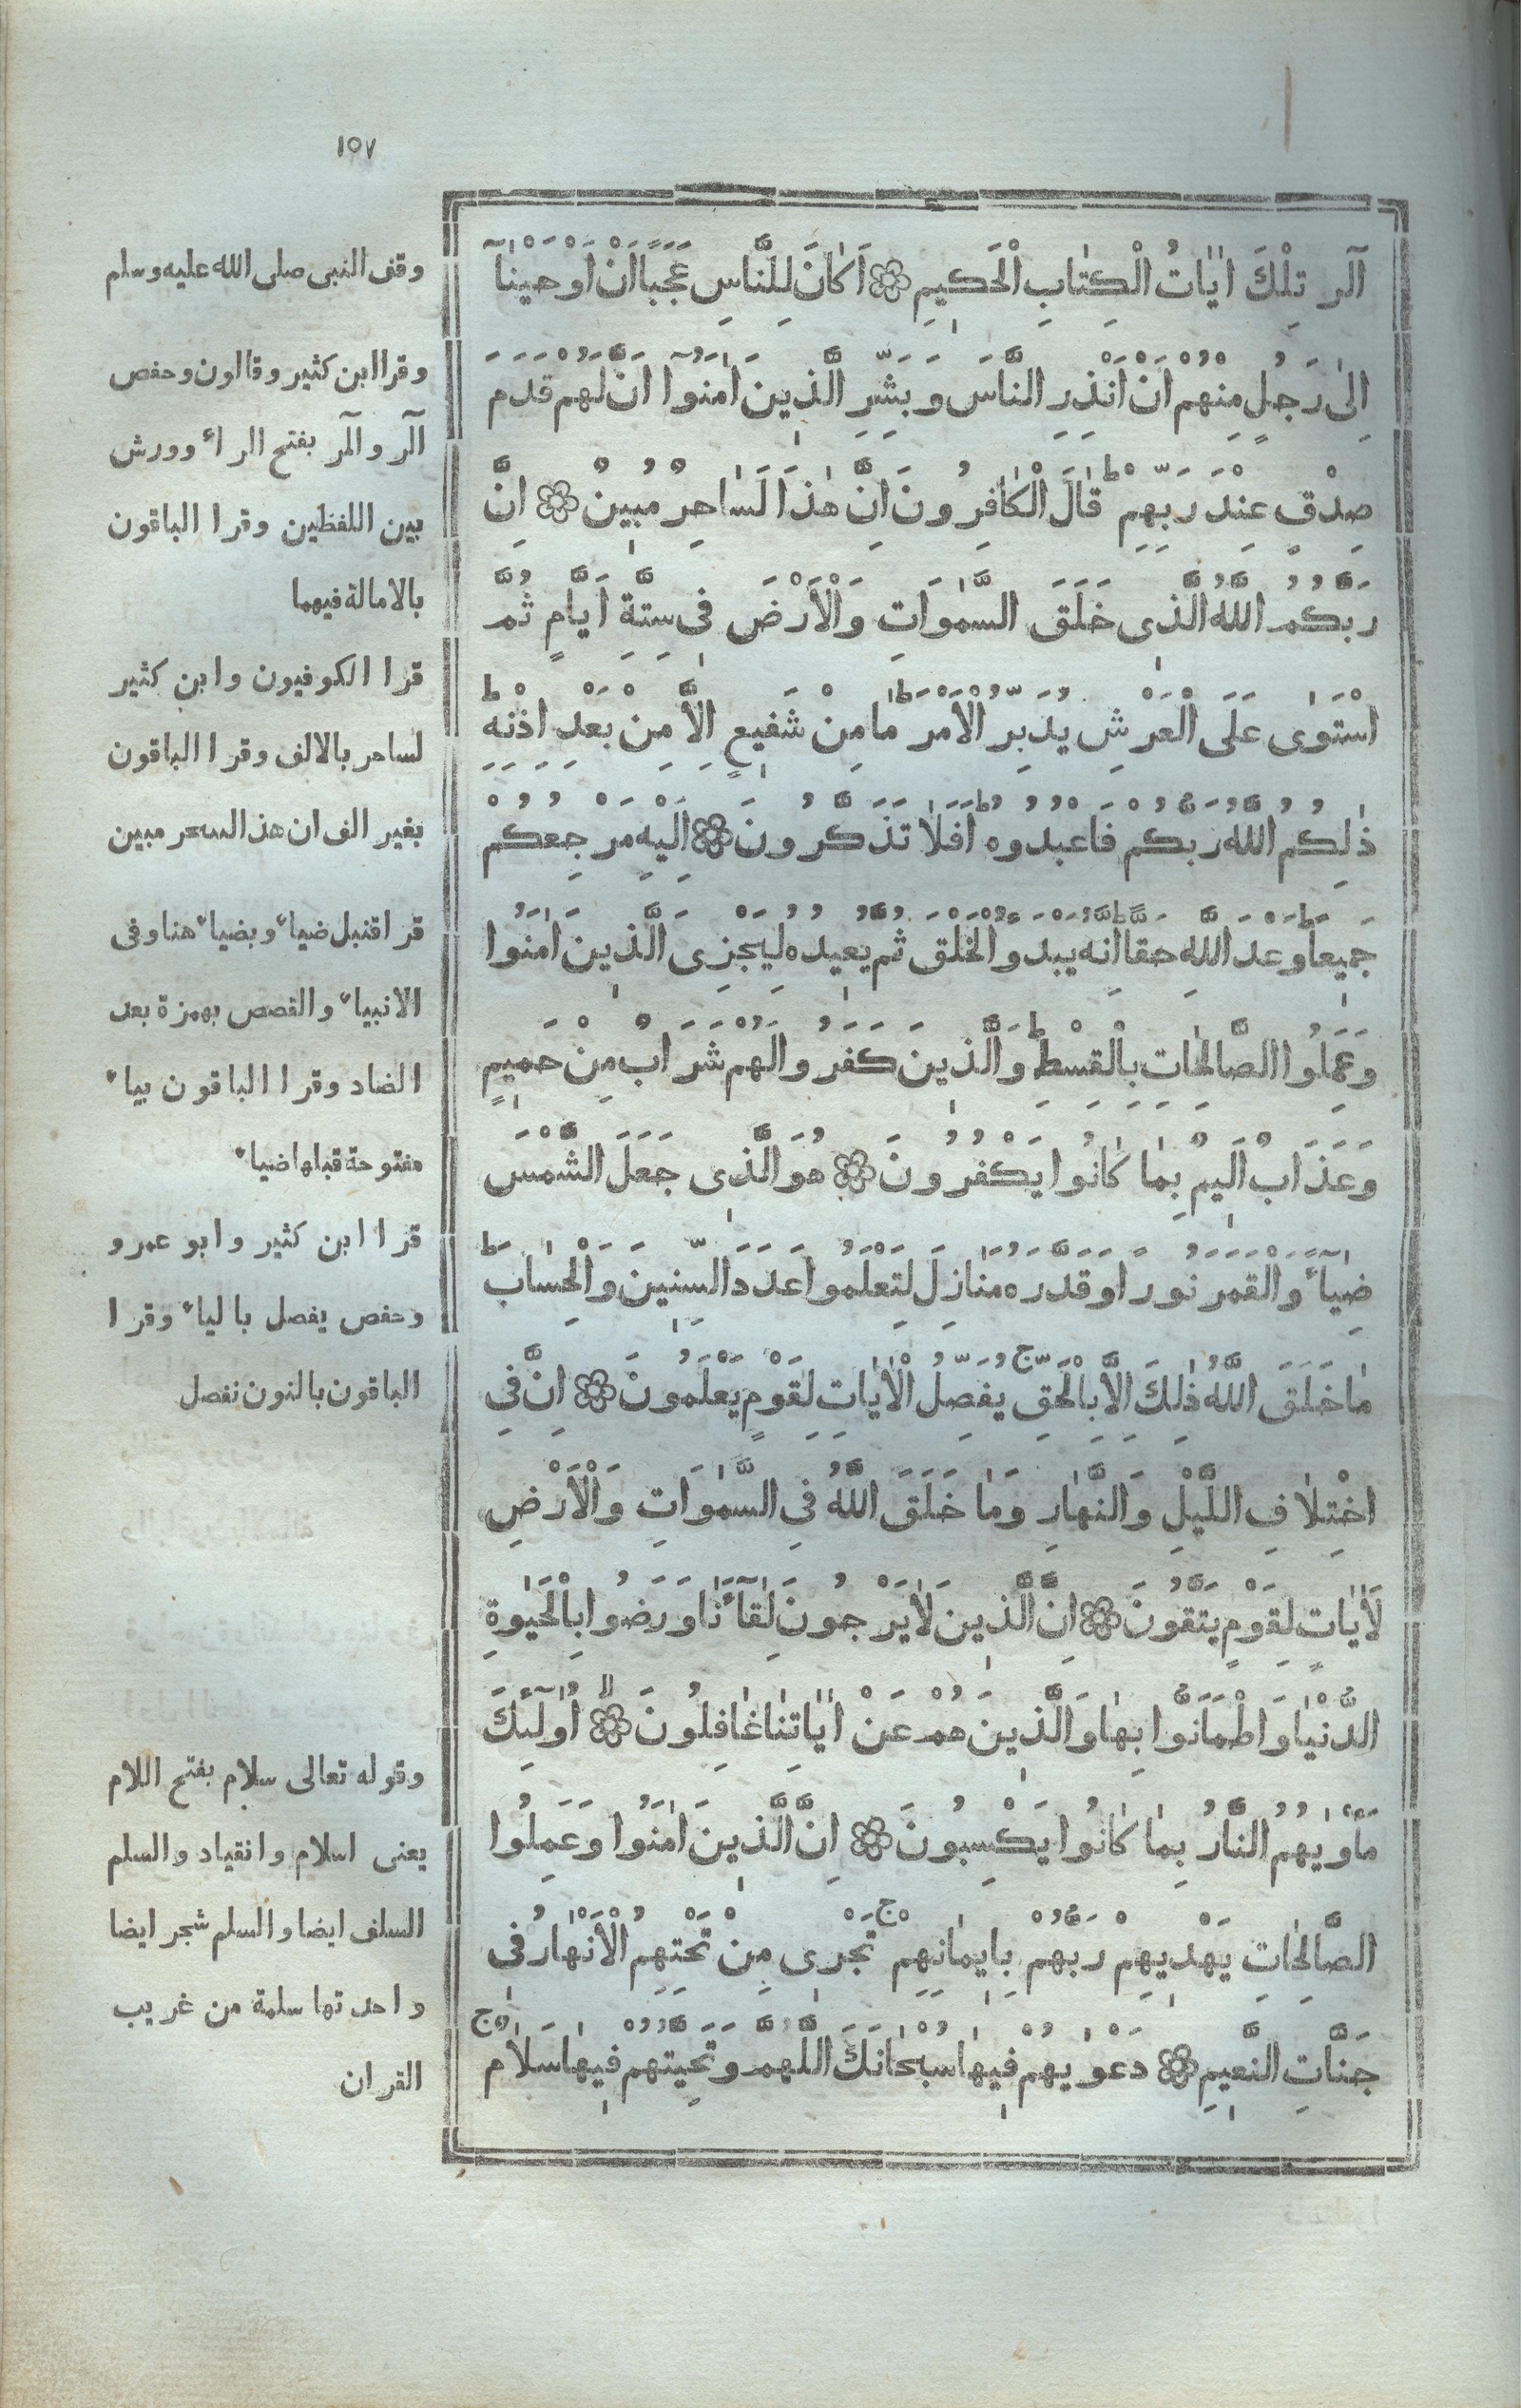 ١٥٧
آلر تِلْكَ اٰيَاتُ الْكِتَابِ الْحَكِيمِ ۞ اَكَانَ لِلنَّاسِ عَجَبًا اَنْ اَوْحَيْنَآ
اِلٰى رَجُلٍ مِنْهُمْ اَنْ اَنْذِرِ النَّاسَ وَبَشِّرِ الَّذِينَ اٰمَنُوٓا اَنَّ لَهُمْ قَدَمَ
صِدْقٍ عِنْدَ رَبِّهِمْ ؕ قَالَ الْكَافِرُونَ اِنَّ هٰذَا لَسَاحِرٌ مُبِينٌ ۞ اِنَّ
رَبَّكُمُ اللّٰهُ الَّذِى خَلَقَ السَّمٰوَاتِ وَالْاَرْضَ فِى سِتَّةِ اَيَّامٍ ثُمَّ
اسْتَوٰى عَلَى الْعَرْشِ يُدَبِّرُ الْاَمْرَ ؕ مَا مِنْ شَفِيعٍ اِلَّا مِنْ بَعْدِ اِذْنِهِ ؕ
ذٰلِكُمُ اللّٰهُ رَبُّكُمْ فَاعْبُدُوهُ ؕ اَفَلَا تَذَكَّرُونَ ۞ اِلَيْهِ مَرْجِعُكُمْ
جَمِيعًا ؕ وَعْدَ اللّٰهِ حَقًّا ؕ اِنَّهُ يَبْدَؤُ الْخَلْقَ ثُمَّ يُعِيدُهُ لِيَجْزِىَ الَّذِينَ اٰمَنُوا
وَعَمِلُوا الصَّالِحَاتِ بِالْقِسْطِ ؕ وَالَّذِينَ كَفَرُوا لَهُمْ شَرَابٌ مِنْ حَمِيمٍ
وَعَذَابٌ اَلِيمٌ بِمَا كَانُوا يَكْفُرُونَ ۞ هُوَ الَّذِى جَعَلَ الشَّمْسَ
ضِيَآءً وَالْقَمَرَ نُورًا وَقَدَّرَهُ مَنَازِلَ لِتَعْلَمُوا عَدَدَ السِّنِينَ وَالْحِسَابَ ؕ
مَا خَلَقَ اللّٰهُ ذٰلِكَ اِلَّا بِالْحَقِّ ۚ يُفَصِّلُ الْاٰيَاتِ لِقَوْمٍ يَعْلَمُونَ ۞ اِنَّ فِى
اخْتِلَافِ اللَّيْلِ وَالنَّهَارِ وَمَا خَلَقَ اللّٰهُ فِى السَّمٰوَاتِ وَالْاَرْضِ
لَاٰيَاتٍ لِقَوْمٍ يَتَّقُونَ ۞ اِنَّ الَّذِينَ لَا يَرْجُونَ لِقَآءَنَا وَرَضُوا بِالْحَيٰوةِ
الدُّنْيَا وَاطْمَاَنُّوا بِهَا وَالَّذِينَ هُمْ عَنْ اٰيَاتِنَا غَافِلُونَ ۙ ۞ اُولٰٓئِكَ
مَاْوٰيهُمُ النَّارُ بِمَا كَانُوا يَكْسِبُونَ ۞ اِنَّ الَّذِينَ اٰمَنُوا وَعَمِلُوا
الصَّالِحَاتِ يَهْدِيهِمْ رَبُّهُمْ بِاِيمَانِهِمْ ۚ تَجْرِى مِنْ تَحْتِهِمُ الْاَنْهَارُ فِى
جَنَّاتِ النَّعِيمِ ۞ دَعْوٰيهُمْ فِيهَا سُبْحَانَكَ اللّٰهُمَّ وَتَحِيَّتُهُمْ فِيهَا سَلَامٌ ۚ
وقف النبى صلى الله عليه وسلم
وقرا ابن كثير وقالون وحفص
آلر والمر بفتح الراء وورش
بين اللفظين وقرا الباقون
بالامالة فيهما
قرا الكوفيون وابن كثير
لساحر بالالف وقرا الباقون
بغير الف ان هذا لسحر مبين
قرا قنبل ضياء وبضياء هنا وفى
الانبياء والقصص بهمزة بعد
الضاد وقرا الباقون بياء
مفتوحة قبلها ضياء
قرا ابن كثير وابو عمرو
وحفص يفصل بالياء وقرا
الباقون بالنون نفصل
وقوله تعالى سلام بفتح اللام
يعنى اسلام وانقياد والسلم
السلف ايضا والسلم شجر ايضا
واحدتها سلمة من غريب
القران